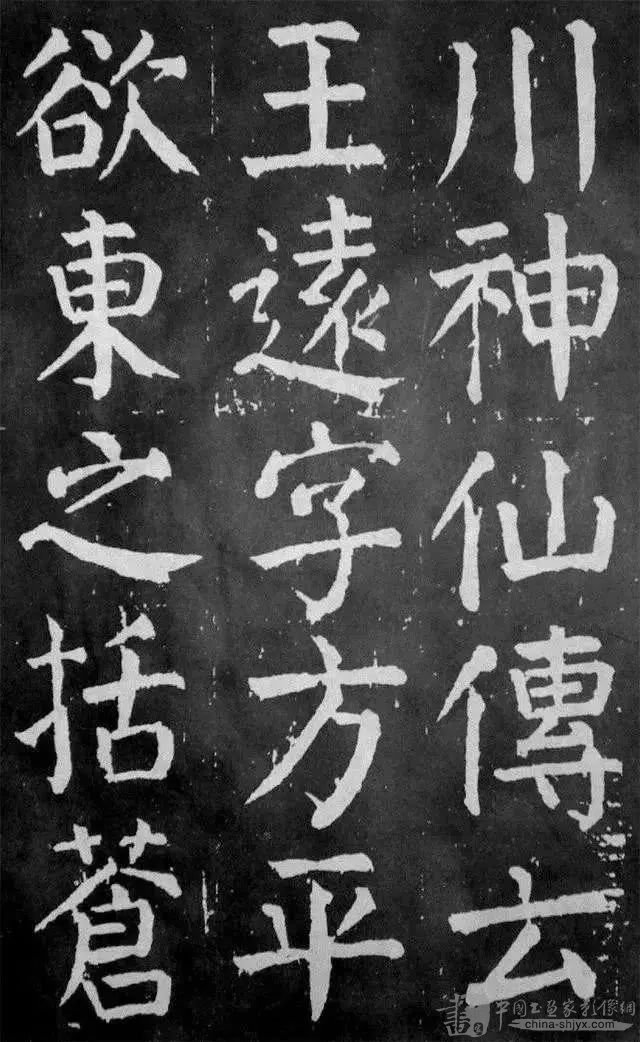 川神仙傳云
王遠字方平
欲東之括蒼
書
中國书画家影像網
china-shjyx.com